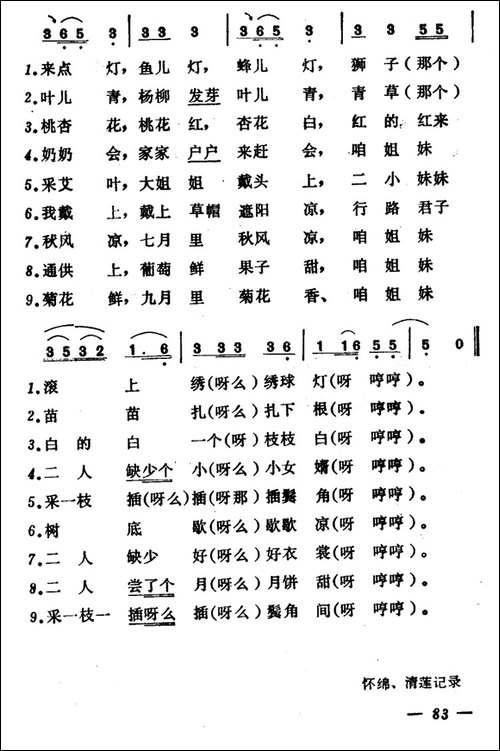 365 3 | 33 3 | 365 3 | 3 3 55
1.来点 灯，鱼儿 灯， 蜂儿 灯， 狮 子(那个)
2.叶儿 青，杨柳 发芽 叶儿 青， 青 草(那个)
3.桃杏 花，桃花 红， 杏花 白， 红 的 红来
4.奶奶 会，家家 户户 来赶 会， 咱 姐 妹
5.采艾 叶，大姐 姐 戴头 上， 二 小 妹妹
6.我戴 上，戴上 草帽 遮阳 凉， 行 路 君子
7.秋风 凉，七月 里 秋风 凉， 咱 姐 妹
8.通供 上，葡萄 鲜 果子 甜， 咱 姐 妹
9.菊花 鲜，九月 里 菊花 香、 咱 姐 妹
35 32 1. 6 | 3 33 33 36 | 1 16 55 | 5 0 ‖
1.滚 上 绣(呀么)绣球 灯(呀 哼哼)。
2.苗 苗 扎(呀么)扎下 根(呀 哼哼)。
3.白 的 白 一个(呀)枝枝 白(呀 哼哼)。
4.二 人 缺少个 小(呀么)小女 婿(呀 哼哼)。
5.采一枝 插(呀么)插(呀那)插鬓 角(呀 哼哼)。
6.树 底 歇(呀么)歇歇 凉(呀 哼哼)。
7.二 人 缺少 好(呀么)好衣 裳(呀 哼哼)。
8.二 人 尝了个 月(呀么)月饼 甜(呀 哼哼)。
9.采一枝一 插呀么 插(呀么)鬓角 间(呀 哼哼)。
怀绵、清莲记录
— 83 —